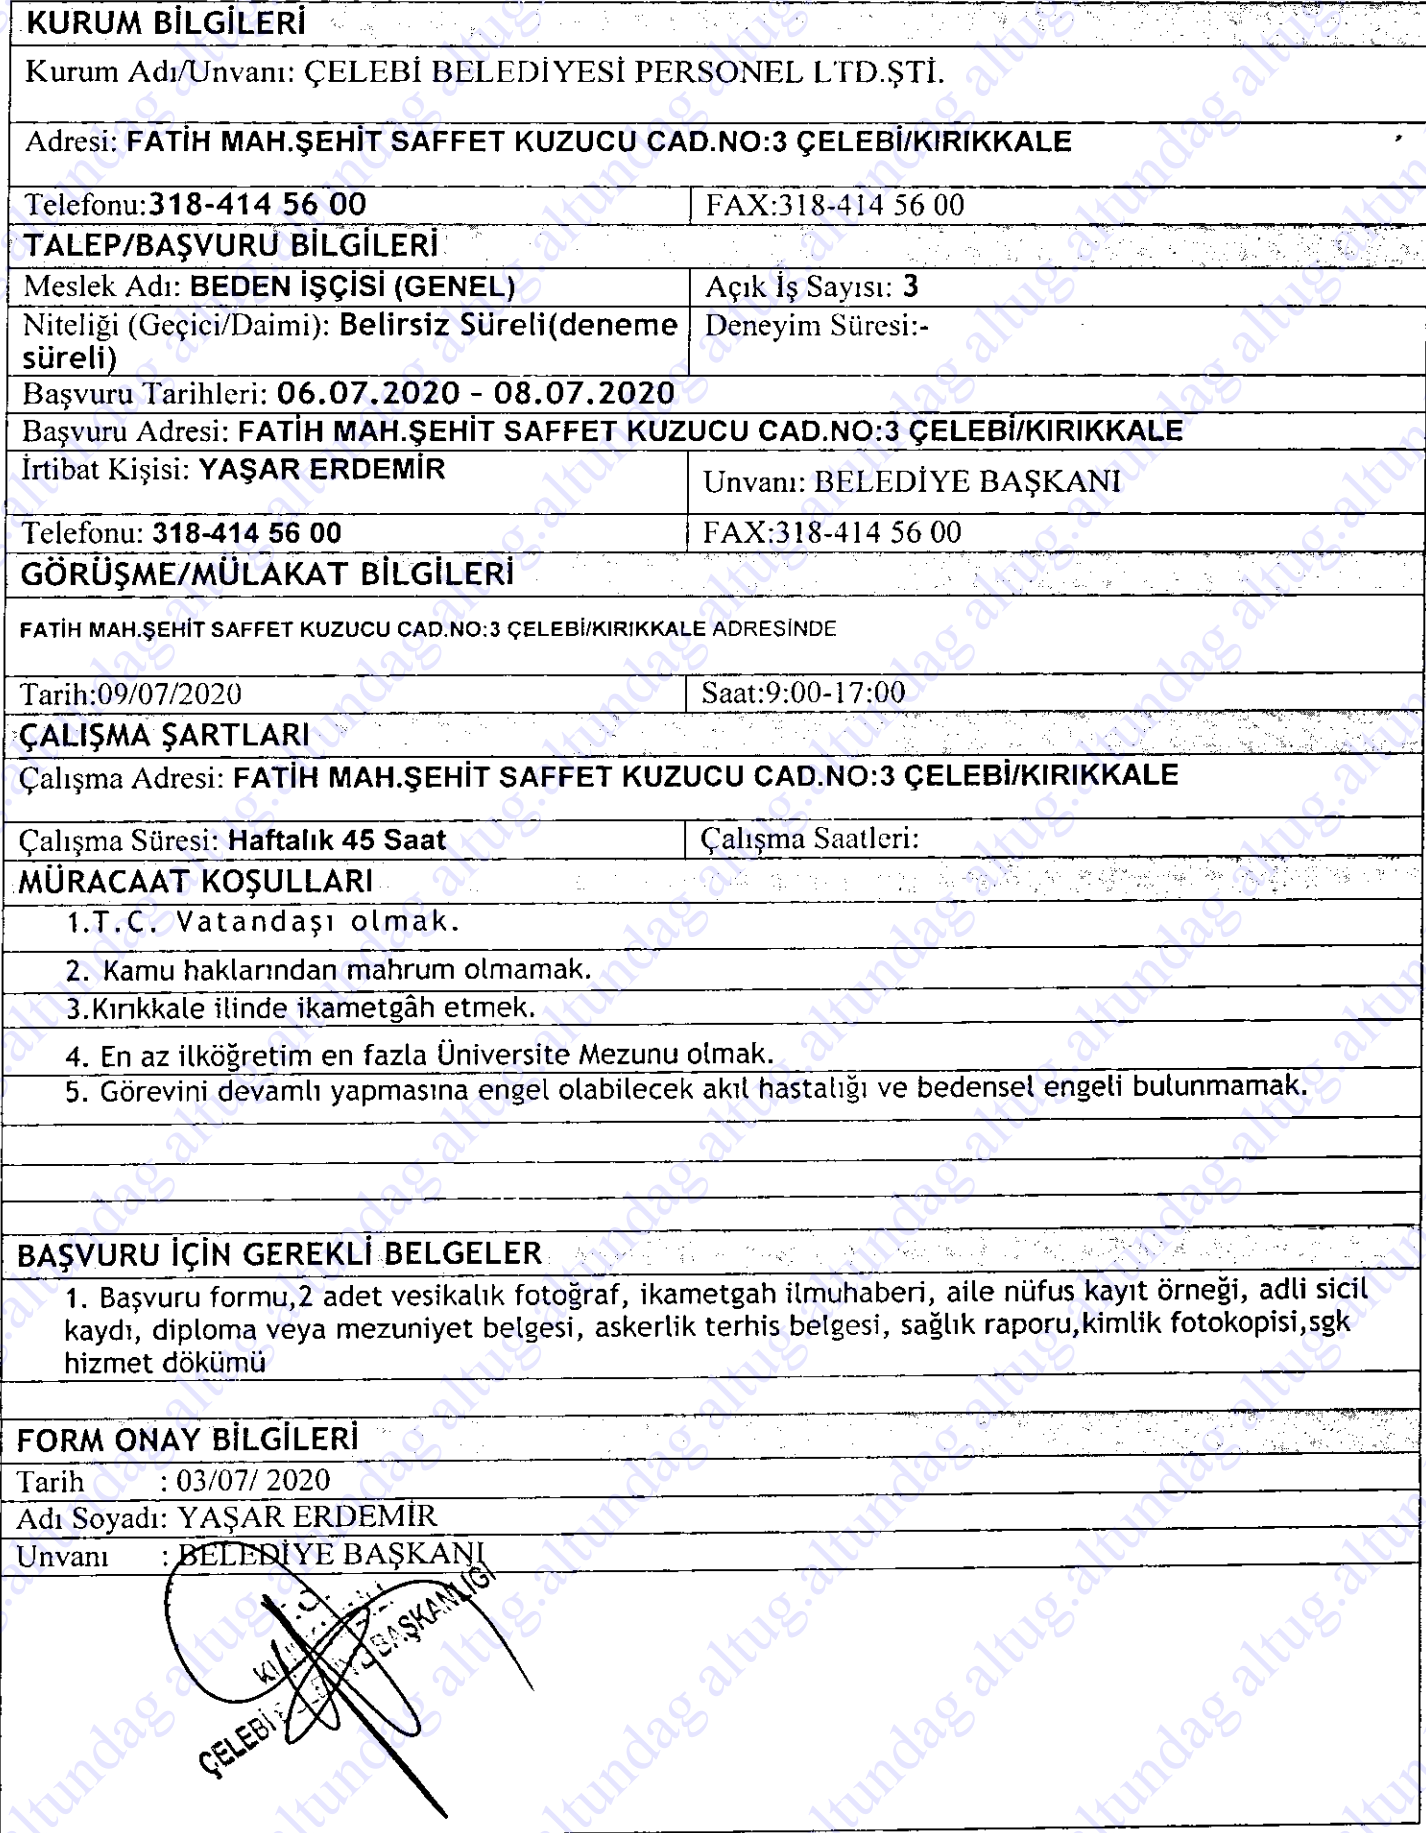 KURUM BİLGİLERİ
Kurum Adı/Unvanı: ÇELEBİ BELEDİYESİ PERSONEL LTD.ŞTİ.
Adresi: FATİH MAH.ŞEHİT SAFFET KUZUCU CAD.NO:3 ÇELEBİ/KIRIKKALE
Telefonu:318-414 56 00 FAX:318-414 56 00
TALEP/BAŞVURU BİLGİLERİ
Meslek Adı: BEDEN İŞÇİSİ (GENEL) Açık İş Sayısı: 3
Niteliği (Geçici/Daimi): Belirsiz Süreli(deneme Deneyim Süresi:-
süreli)
Başvuru Tarihleri: 06.07.2020 - 08.07.2020
Başvuru Adresi: FATİH MAH.ŞEHİT SAFFET KUZUCU CAD.NO:3 ÇELEBİ/KIRIKKALE
İrtibat Kişisi: YAŞAR ERDEMİR Unvanı: BELEDİYE BAŞKANI
Telefonu: 318-414 56 00 FAX:318-414 56 00
GÖRÜŞME/MÜLAKAT BİLGİLERİ
FATİH MAH.ŞEHİT SAFFET KUZUCU CAD.NO:3 ÇELEBİ/KIRIKKALE ADRESİNDE
Tarih:09/07/2020 Saat:9:00-17:00
ÇALIŞMA ŞARTLARI
Çalışma Adresi: FATİH MAH.ŞEHİT SAFFET KUZUCU CAD.NO:3 ÇELEBİ/KIRIKKALE
Çalışma Süresi: Haftalık 45 Saat Çalışma Saatleri:
MÜRACAAT KOŞULLARI
1.T.C. Vatandaşı olmak.
2. Kamu haklarından mahrum olmamak.
3.Kırıkkale ilinde ikametgâh etmek.
4. En az ilköğretim en fazla Üniversite Mezunu olmak.
5. Görevini devamlı yapmasına engel olabilecek akıl hastalığı ve bedensel engeli bulunmamak.
BAŞVURU İÇİN GEREKLİ BELGELER
1. Başvuru formu,2 adet vesikalık fotoğraf, ikametgah ilmuhaberi, aile nüfus kayıt örneği, adli sicil
kaydı, diploma veya mezuniyet belgesi, askerlik terhis belgesi, sağlık raporu,kimlik fotokopisi,sgk
hizmet dökümü
FORM ONAY BİLGİLERİ
Tarih : 03/07/ 2020
Adı Soyadı: YAŞAR ERDEMİR
Unvanı : BELEDİYE BAŞKANI
ÇELEBİ BAŞKANLIĞI
altug.altundag